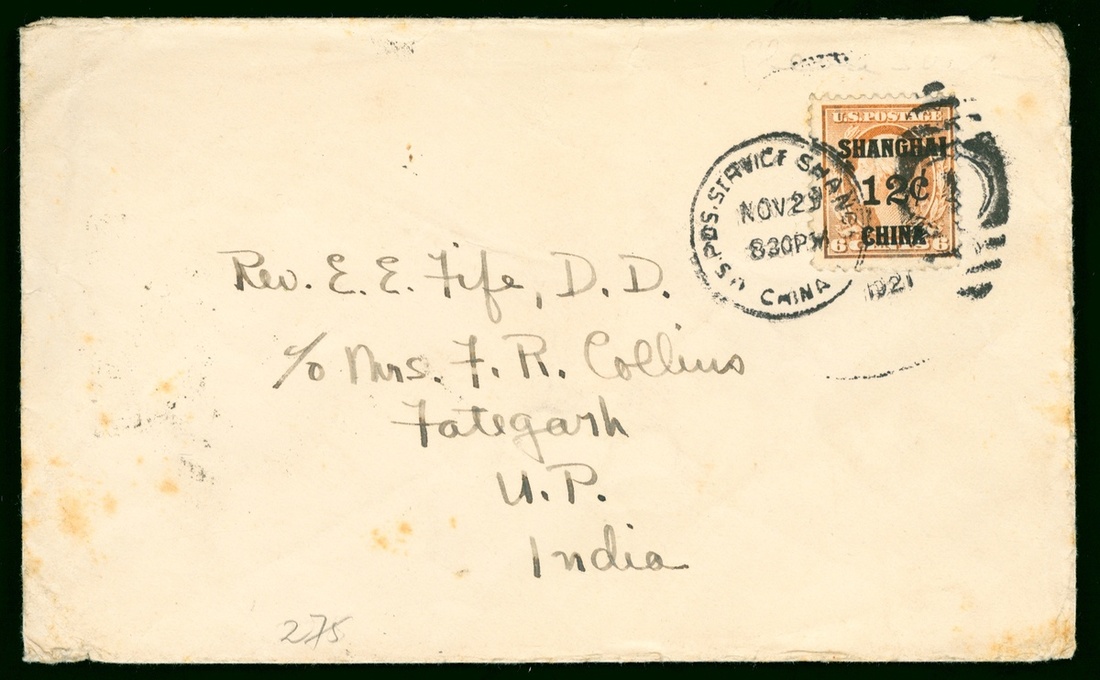 U.S. POSTAGE
SHANGHAI
12¢
CHINA
6 6
U.S. POS. SERVICE SHANG
NOV 29
830PM
1921
CHINA
Rev. E. E. Fife, D. D.
c/o Mrs. F. R. Collins
Fategarh
U. P.
India
275